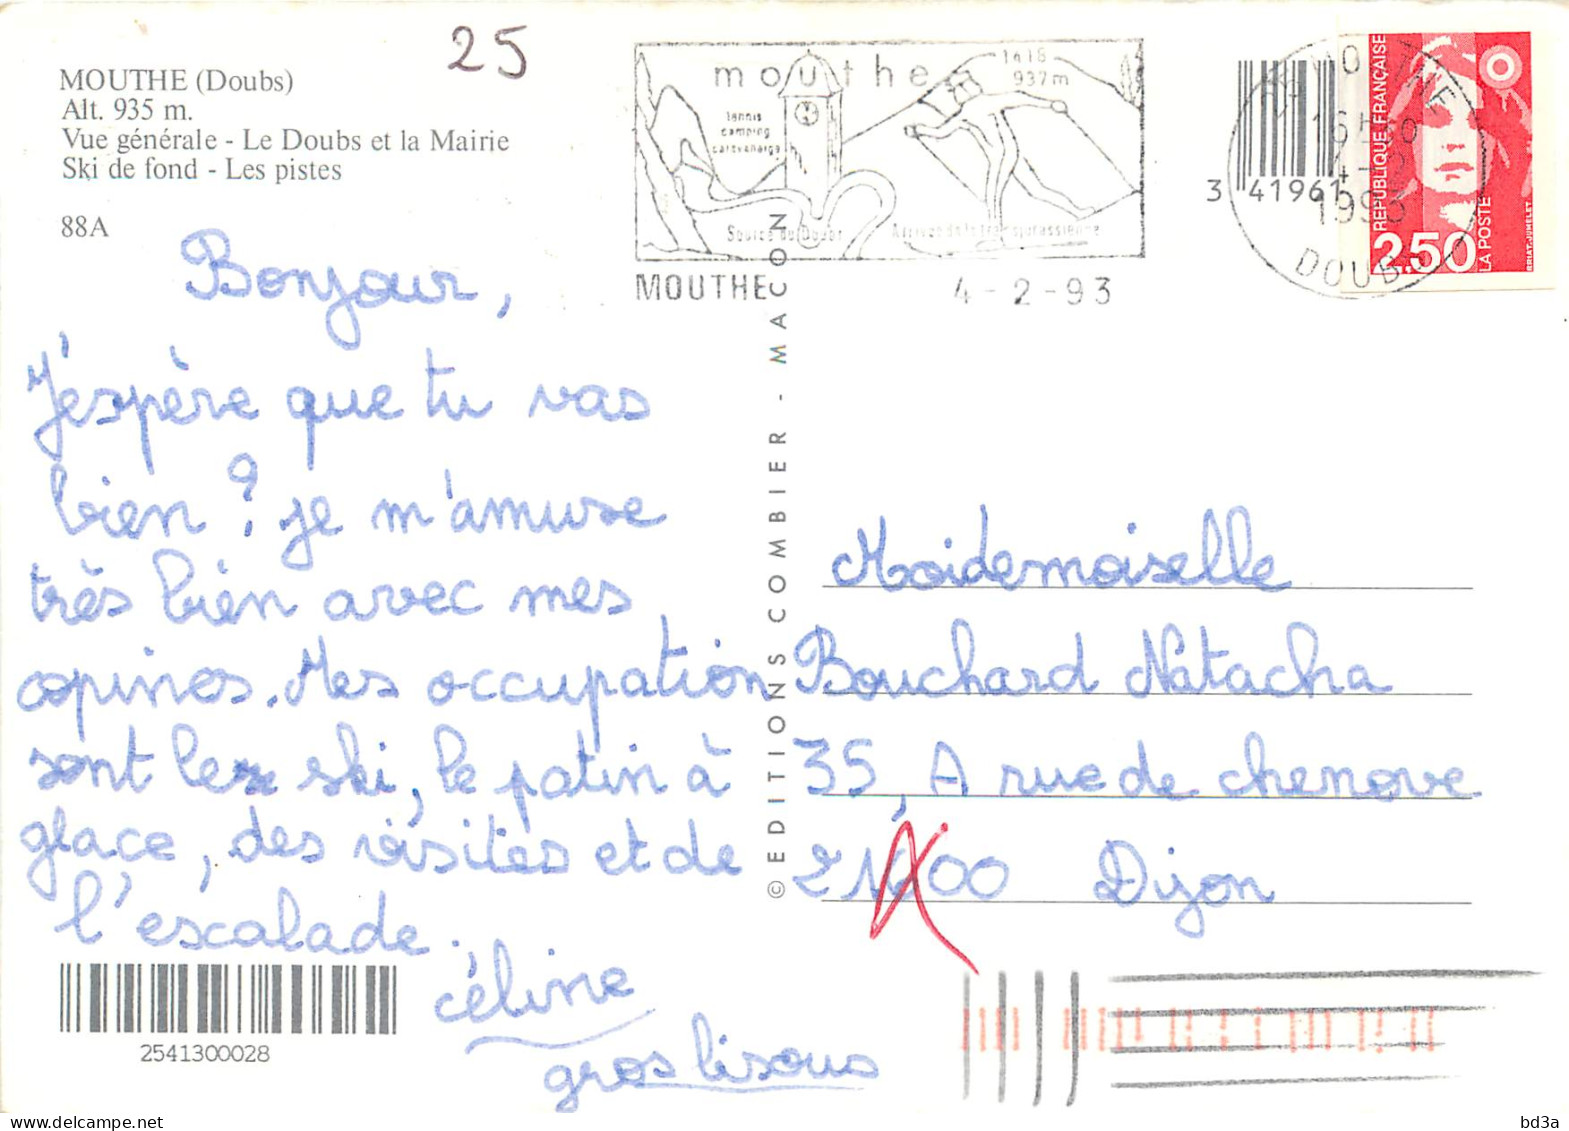 25
MOUTHE (Doubs)
Alt. 935 m.
Vue générale - Le Doubs et la Mairie
Ski de fond - Les pistes
88A
mouthe
937m
tennis
camping
caravaneige
Source du Doubs
Arrivée de la transjurassienne
MOUTHE
4-2-93
3 41961
MOUTHE
4-2
1993
DOUBS
RÉPUBLIQUE FRANÇAISE
2,50
LA POSTE
BRIAT-JUMELET
Bonjour,
J'espère que tu vas
bien ? je m'amuse
très bien avec mes
copines. Mes occupation
sont les ski, le patin à
glace, des visites et de
l'escalade.
céline
gros bisous
2541300028
© EDITIONS COMBIER - MACON
Moidemoiselle
Bouchard Natacha
35, A rue de chenove
21000 Dijon
bd3a